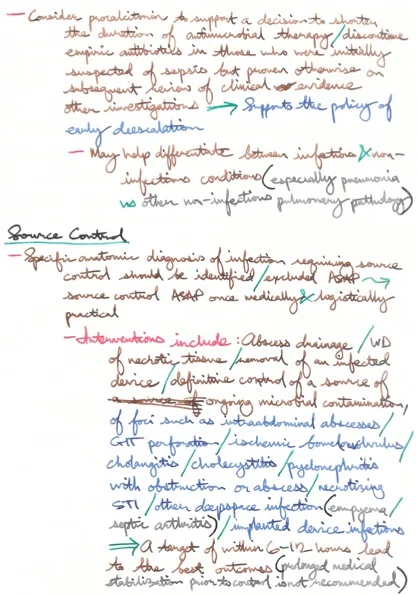 — Consider procalcitonin to support a decision to shorten
the duration of antimicrobial therapy/discontinue
empiric antibiotics in those who were initially
suspected of sepsis but proven otherwise on
subsequent review of clinical evidence
other investigations → Supports the policy of
early deescalation
— May help differentiate between infectious & non-
infectious conditions (especially pneumonia
vs other non-infectious pulmonary pathology)
Source Control
— Specific anatomic diagnosis of infection requiring source
control should be identified/excluded ASAP →
source control ASAP once medically & logistically
practical
— Interventions include: Abscess drainage/WD
of necrotic tissue/removal of an infected
device/definitive control of a source of
a source of ongoing microbial contamination,
of foci such as intraabdominal abscesses/
GIT perforation/ischemic bowel/volvulus/
cholangitis/cholecystitis/pyelonephritis
with obstruction or abscess/necrotizing
STI/other deepspace infection (empyema/
septic arthritis)/implanted device infections
⇒ A target of within 6-12 hours lead
to the best outcomes (prolonged medical
stabilization prior to control is not recommended)